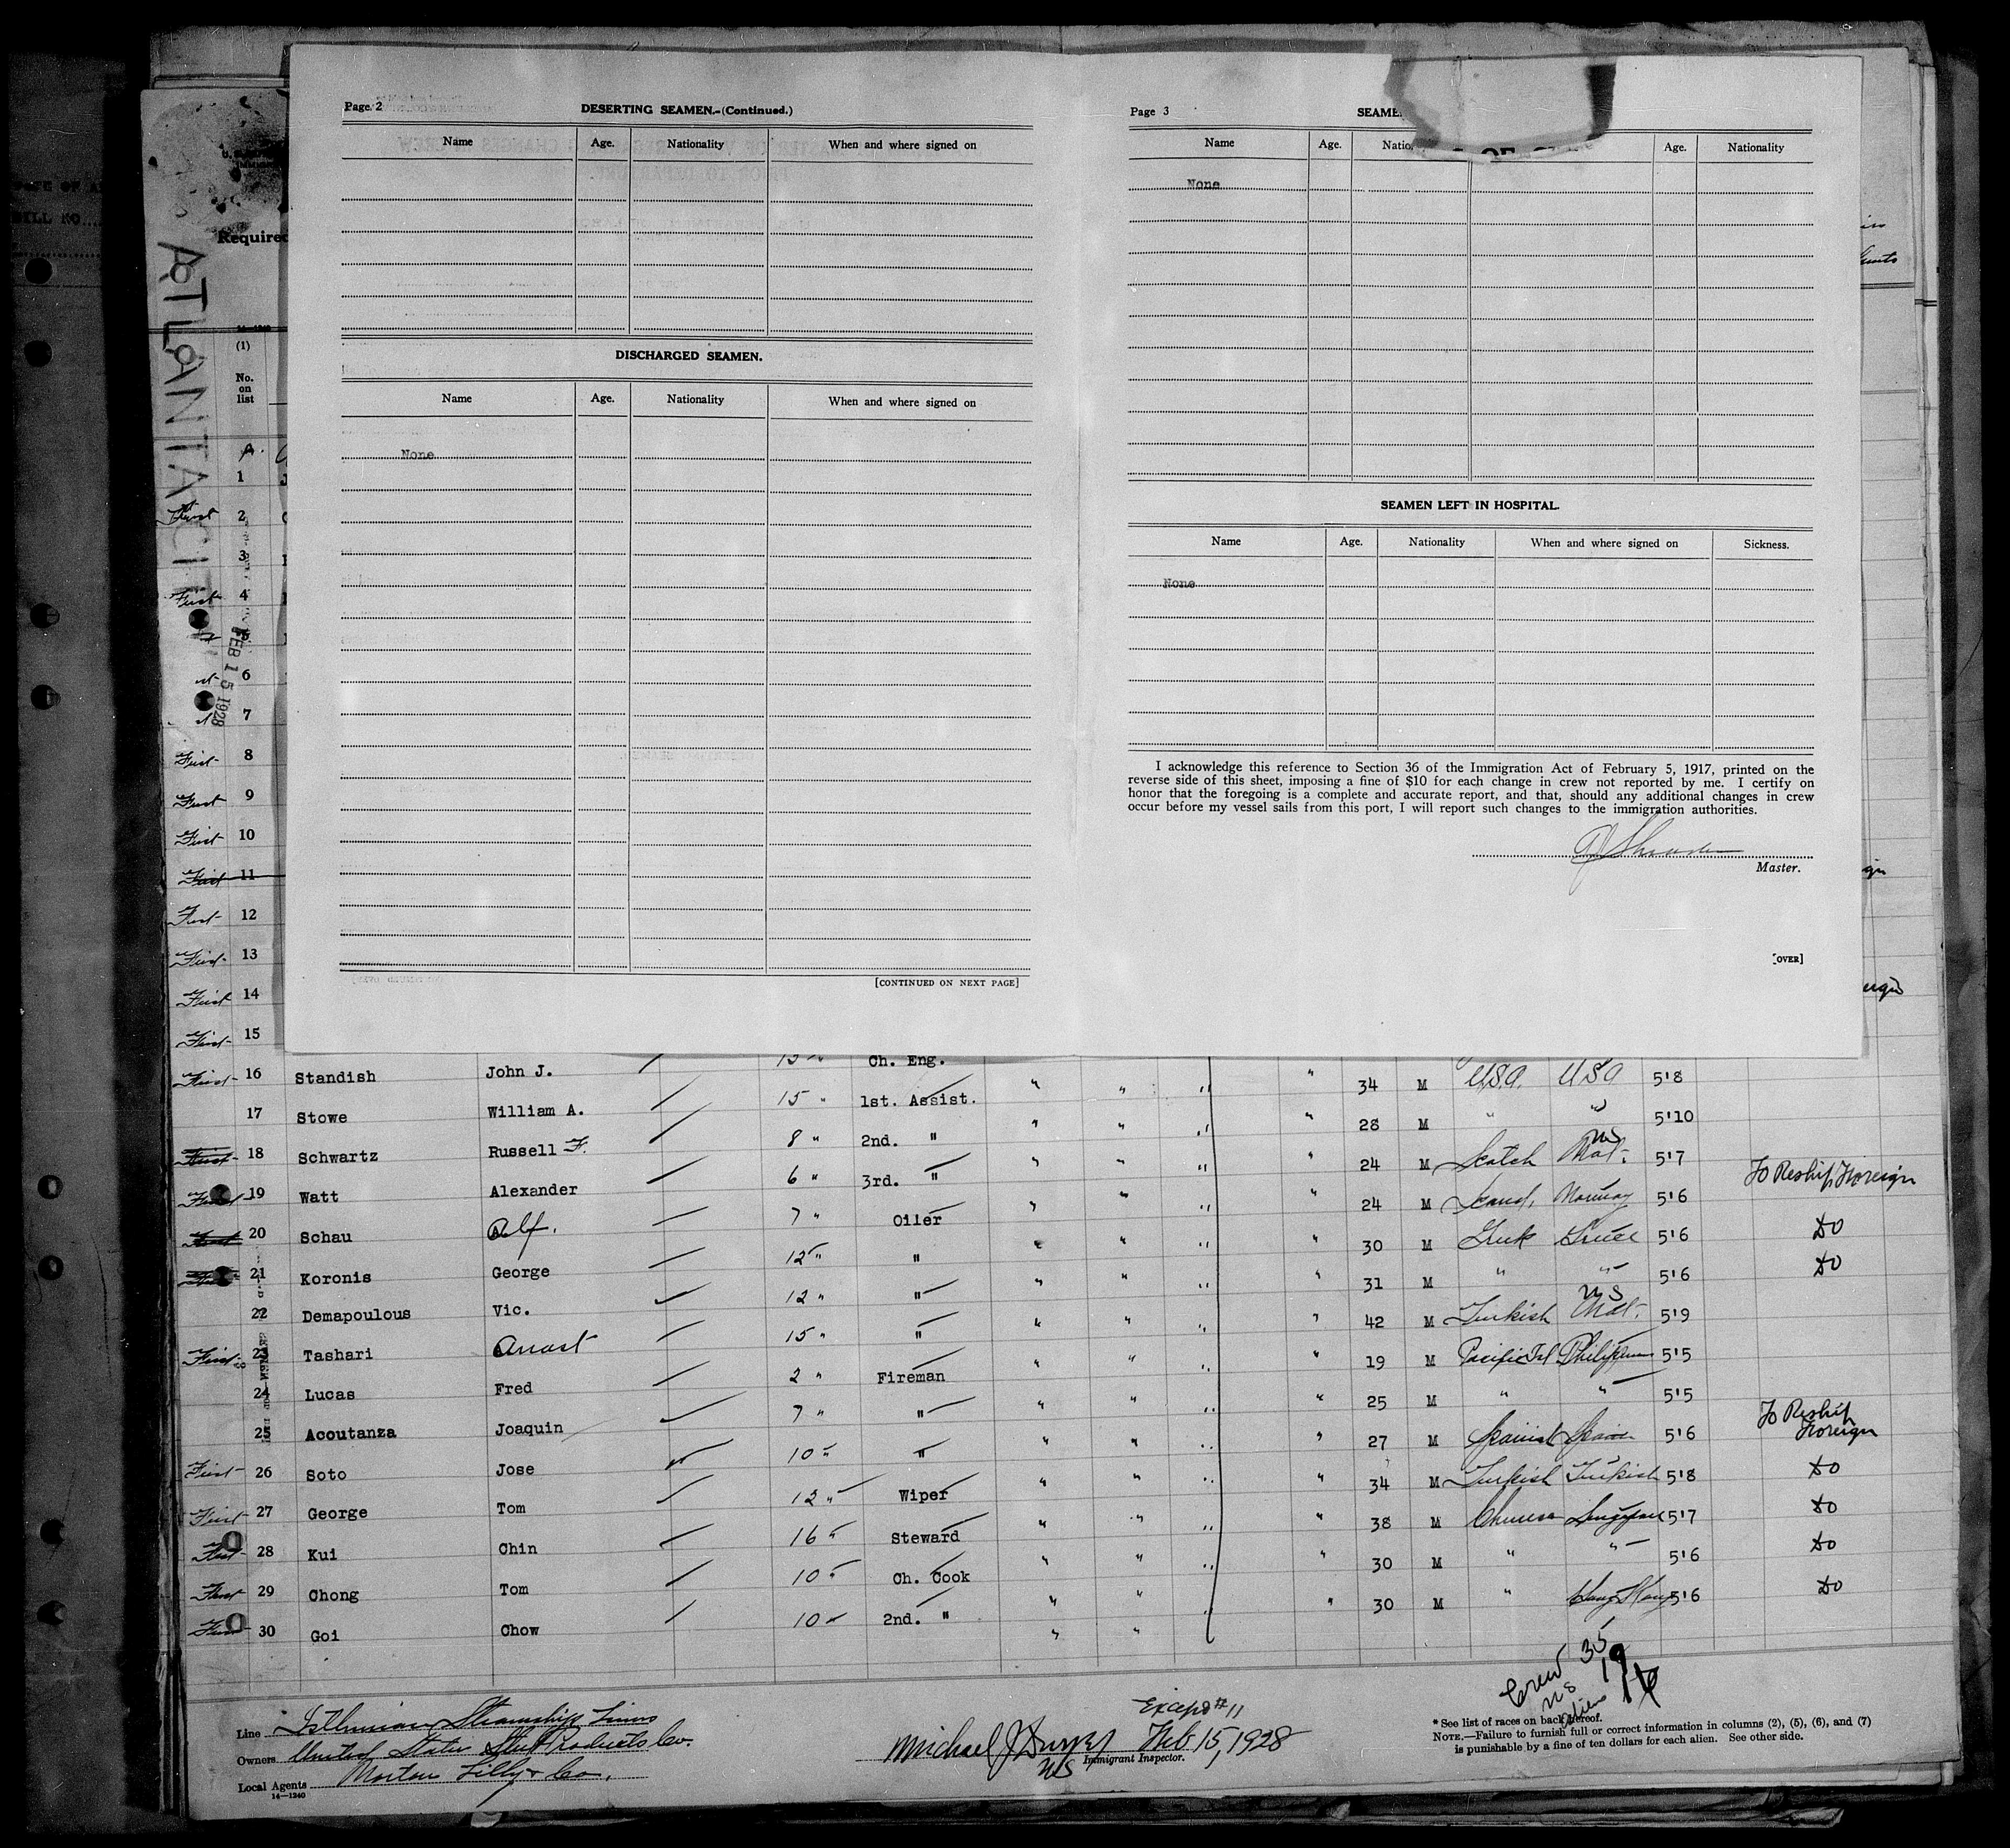 Page 2
DESERTING SEAMEN.-(Continued.)
Name Age. Nationality When and where signed on
DISCHARGED SEAMEN.
Name Age. Nationality When and where signed on
None
[CONTINUED ON NEXT PAGE]
Page 3
Name Age. Age. Nationality
None
SEAMEN LEFT IN HOSPITAL.
Name Age. Nationality When and where signed on Sickness.
None
I acknowledge this reference to Section 36 of the Immigration Act of February 5, 1917, printed on the
reverse side of this sheet, imposing a fine of $10 for each change in crew not reported by me. I certify on
honor that the foregoing is a complete and accurate report, and that, should any additional changes in crew
occur before my vessel sails from this port, I will report such changes to the immigration authorities.
Master.
[OVER]
Required
ATLANTA CIT
FEB 15 1928
(1)
No.
on
list
1
First 2
3
First 4
5
6
7
First 8
First 9
First 10
First 11
First 12
First 13
First 14
First 15
15 " Ch. Eng.
First 16 Standish John J. 15 " 1st. Assist. " " " " 34 M U.S.A. USA 5'8
17 Stowe William A. 8 " 2nd. " " " " " 28 M " " 5'10
First 18 Schwartz Russell F. 6 " 3rd. " " " " " 24 M Scotch US Nat. 5'7
First 19 Watt Alexander 7 " Oiler " " " " 24 M Scand. Norway 5'6 To Reship Foreign
First 20 Schau Alf. 12 " " " " " " 30 M Greek Greece 5'6 DO
21 Koronis George 12 " " " " " " 31 M " " 5'6 DO
22 Demapoulous Vic. 15 " " " " " " 42 M Turkish US Nat. 5'9
First 23 Tashari Anast 2 " Fireman " " " " 19 M Pacific Isl Philippine 5'5
24 Lucas Fred 7 " " " " " " 25 M " " 5'5
25 Acoutanza Joaquin 10 " " " " " " 27 M Spanish Spain 5'6 To Reship Foreign
First 26 Soto Jose 12 " Wiper " " " " 34 M Turkish Turkish 5'8 DO
First 27 George Tom 16 " Steward " " " " 38 M Chinese Singapore 5'7 DO
First 28 Kui Chin 10 " Ch. Cook " " " " 30 M " " 5'6 DO
First 29 Chong Tom 10 " 2nd. " " " " " 30 M " Hong Kong 5'6 DO
First 30 Goi Chow
Crew 35
US 19
Aliens 16
Line Isthmian Steamship Lines
Owners United States Steel Products Co.
Local Agents Norton Lilly & Co.
14—1240
Except #11
Michael J Feb 15, 1928
Immigrant Inspector.
US
* See list of races on back hereof.
NOTE.—Failure to furnish full or correct information in columns (2), (5), (6), and (7)
is punishable by a fine of ten dollars for each alien. See other side.